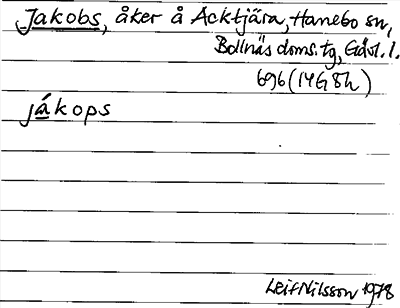 Jakobs, åker å Acktjära, Hanebo sn,
Bollnäs doms. tg, Gävl. l.
696 (14G8h)
jákops
Leif Nilsson 1978